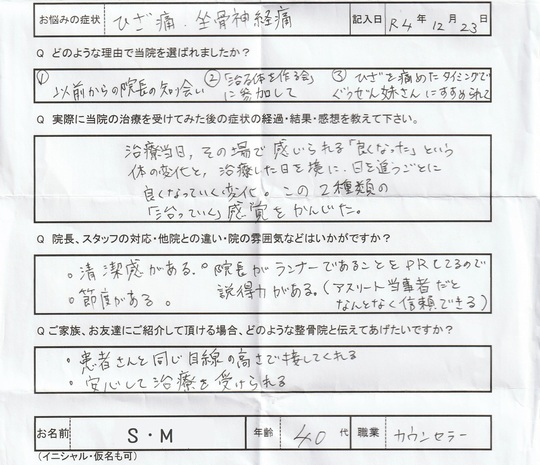 お悩みの症状 ひざ痛、坐骨神経痛 記入日 R4年 12月 23日
Q どのような理由で当院を選ばれましたか?
① 以前からの院長の知り合い ② 「治る体を作る会」に参加して ③ ひざを痛めたタイミングでぐうぜん妹さんにすすめられて
Q 実際に当院の治療を受けてみた後の症状の経過・結果・感想を教えて下さい。
治療当日、その場で感じられる「良くなった」という
体の変化と、治療した日を境に、日を追うごとに
良くなっていく変化。この2種類の
「治っていく」感覚をかんじた。
Q 院長、スタッフの対応・他院との違い・院の雰囲気などはいかがですか?
○清潔感がある。
○節度がある。
○院長がランナーであることをPRしてるので
説得力がある。(アスリート当事者だと
なんとなく信頼できる)
Qご家族、お友達にご紹介して頂ける場合、どのような整骨院と伝えてあげたいですか?
○患者さんと同じ目線の高さで接してくれる
○安心して治療を受けられる
お名前 S・M 年齢 40代 職業 カウンセラー
(イニシャル・仮名も可)